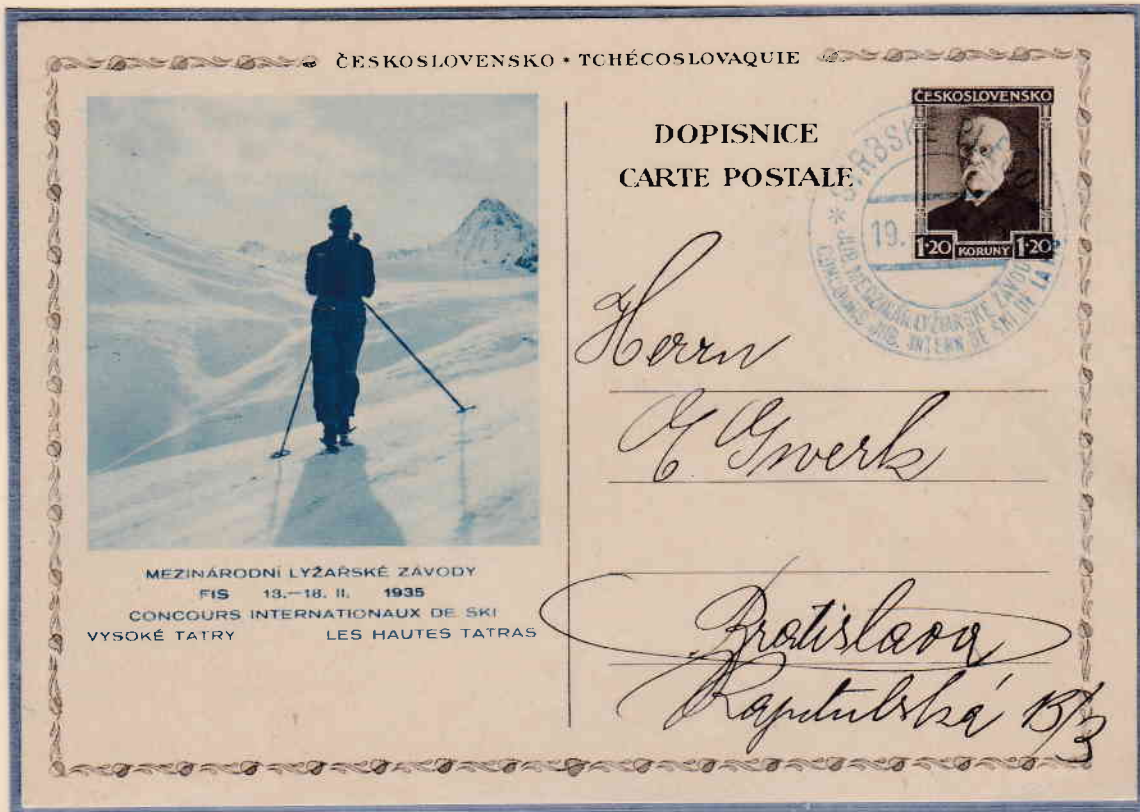 ČESKOSLOVENSKO • TCHÉCOSLOVAQUIE
DOPISNICE
CARTE POSTALE
ČESKOSLOVENSKO
1·20 KORUNY 1·20
ŠTRBSKÉ
19.
JUB. MEDZINÁR. LYŽIARSKÉ ZÁVODY
CONCOURS JUB. INTERN DE SKI DE LA
Herrn
E Gwerk
Bratislava
Kapitulská 13/3
MEZINÁRODNÍ LYŽAŘSKÉ ZÁVODY
FIS 13.—18. II. 1935
CONCOURS INTERNATIONAUX DE SKI
VYSOKÉ TATRY LES HAUTES TATRAS